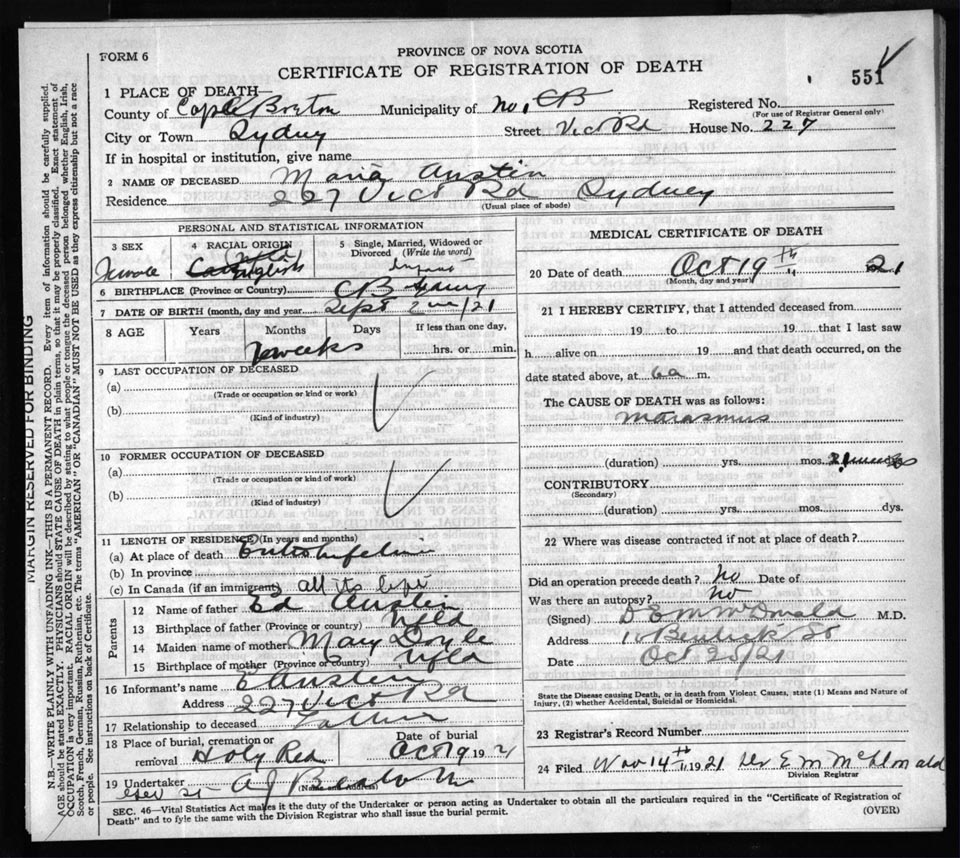 FORM 6
PROVINCE OF NOVA SCOTIA
CERTIFICATE OF REGISTRATION OF DEATH
551
1 PLACE OF DEATH
County of Cape Breton Municipality of No. CB Registered No.
(For use of Registrar General only)
City or Town Sydney Street Vict Rd House No. 227
If in hospital or institution, give name
2 NAME OF DECEASED Maria Austin
Residence 227 Vict Rd Sydney
(Usual place of abode)
PERSONAL AND STATISTICAL INFORMATION
3 SEX 4 RACIAL ORIGIN 5 Single, Married, Widowed or Divorced (Write the word)
Female English Infant
6 BIRTHPLACE (Province or Country) CB
7 DATE OF BIRTH (month, day and year) Sept 2nd/21
8 AGE Years Months Days If less than one day,
weeks hrs. or min.
9 LAST OCCUPATION OF DECEASED
(a)
(Trade or occupation or kind or work)
(b)
(Kind of industry)
10 FORMER OCCUPATION OF DECEASED
(a)
(Trade or occupation or kind of work)
(b)
(Kind of industry)
11 LENGTH OF RESIDENCE (In years and months)
(a) At place of death Entire life time
(b) In province
(c) In Canada (if an immigrant) all its life
Parents
12 Name of father Ed Austin
13 Birthplace of father (Province or country) Nfld
14 Maiden name of mother Mary Doyle
15 Birthplace of mother (Province or country) Nfld
16 Informant's name E Austin
Address 227 Vict Rd
17 Relationship to deceased Father
18 Place of burial, cremation or removal Holy Red Date of burial Oct 19 1921
19 Undertaker A J Beaton
(Name and Address)
MEDICAL CERTIFICATE OF DEATH
20 Date of death Oct 19th 21
(Month, day and year)
21 I HEREBY CERTIFY, that I attended deceased from
19 to 19 that I last saw
h alive on 19 and that death occurred, on the
date stated above, at 6 a m.
The CAUSE OF DEATH was as follows:
Marasmus
(duration) yrs. mos.
CONTRIBUTORY
(Secondary)
(duration) yrs. mos. dys.
22 Where was disease contracted if not at place of death?
Did an operation precede death? No Date of
Was there an autopsy? No
(Signed) D E M McDonald M.D.
Address Bentick St
Date Oct 25/21
State the Disease causing Death, or in death from Violent Causes, state (1) Means and Nature of
Injury, (2) whether Accidental, Suicidal or Homicidal.
23 Registrar's Record Number
24 Filed Nov 14th 1921 E M McDonald
Division Registrar
SEC. 46—Vital Statistics Act makes it the duty of the Undertaker or person acting as Undertaker to obtain all the particulars required in the "Certificate of Registration of
Death" and to fyle the same with the Division Registrar who shall issue the burial permit.
(OVER)
MARGIN RESERVED FOR BINDING
N.B.—WRITE PLAINLY WITH UNFADING INK—THIS IS A PERMANENT RECORD. Every item of information should be carefully supplied.
AGE should be stated EXACTLY. PHYSICIANS should STATE CAUSE OF DEATH in plain terms, so that it may be properly classified. Exact statement of
OCCUPATION is very important. RACIAL ORIGIN will be described by stating to what people or tongue the deceased person belonged whether English, Irish,
Scotch, French, German, Russian, Ruthenian, etc. The terms "AMERICAN" OR "CANADIAN" MUST NOT BE USED as they express citizenship but not a race
or people. See instructions on back of Certificate.